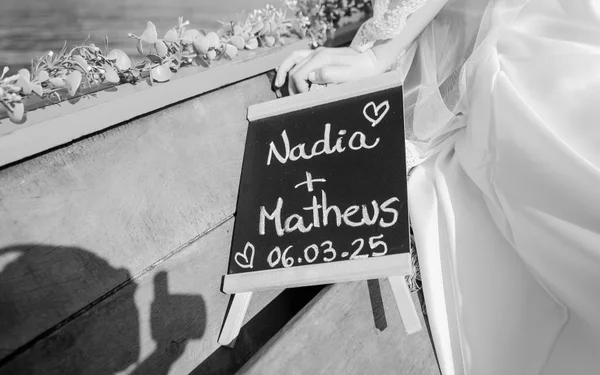 Nadia
+
Matheus
06.03.25